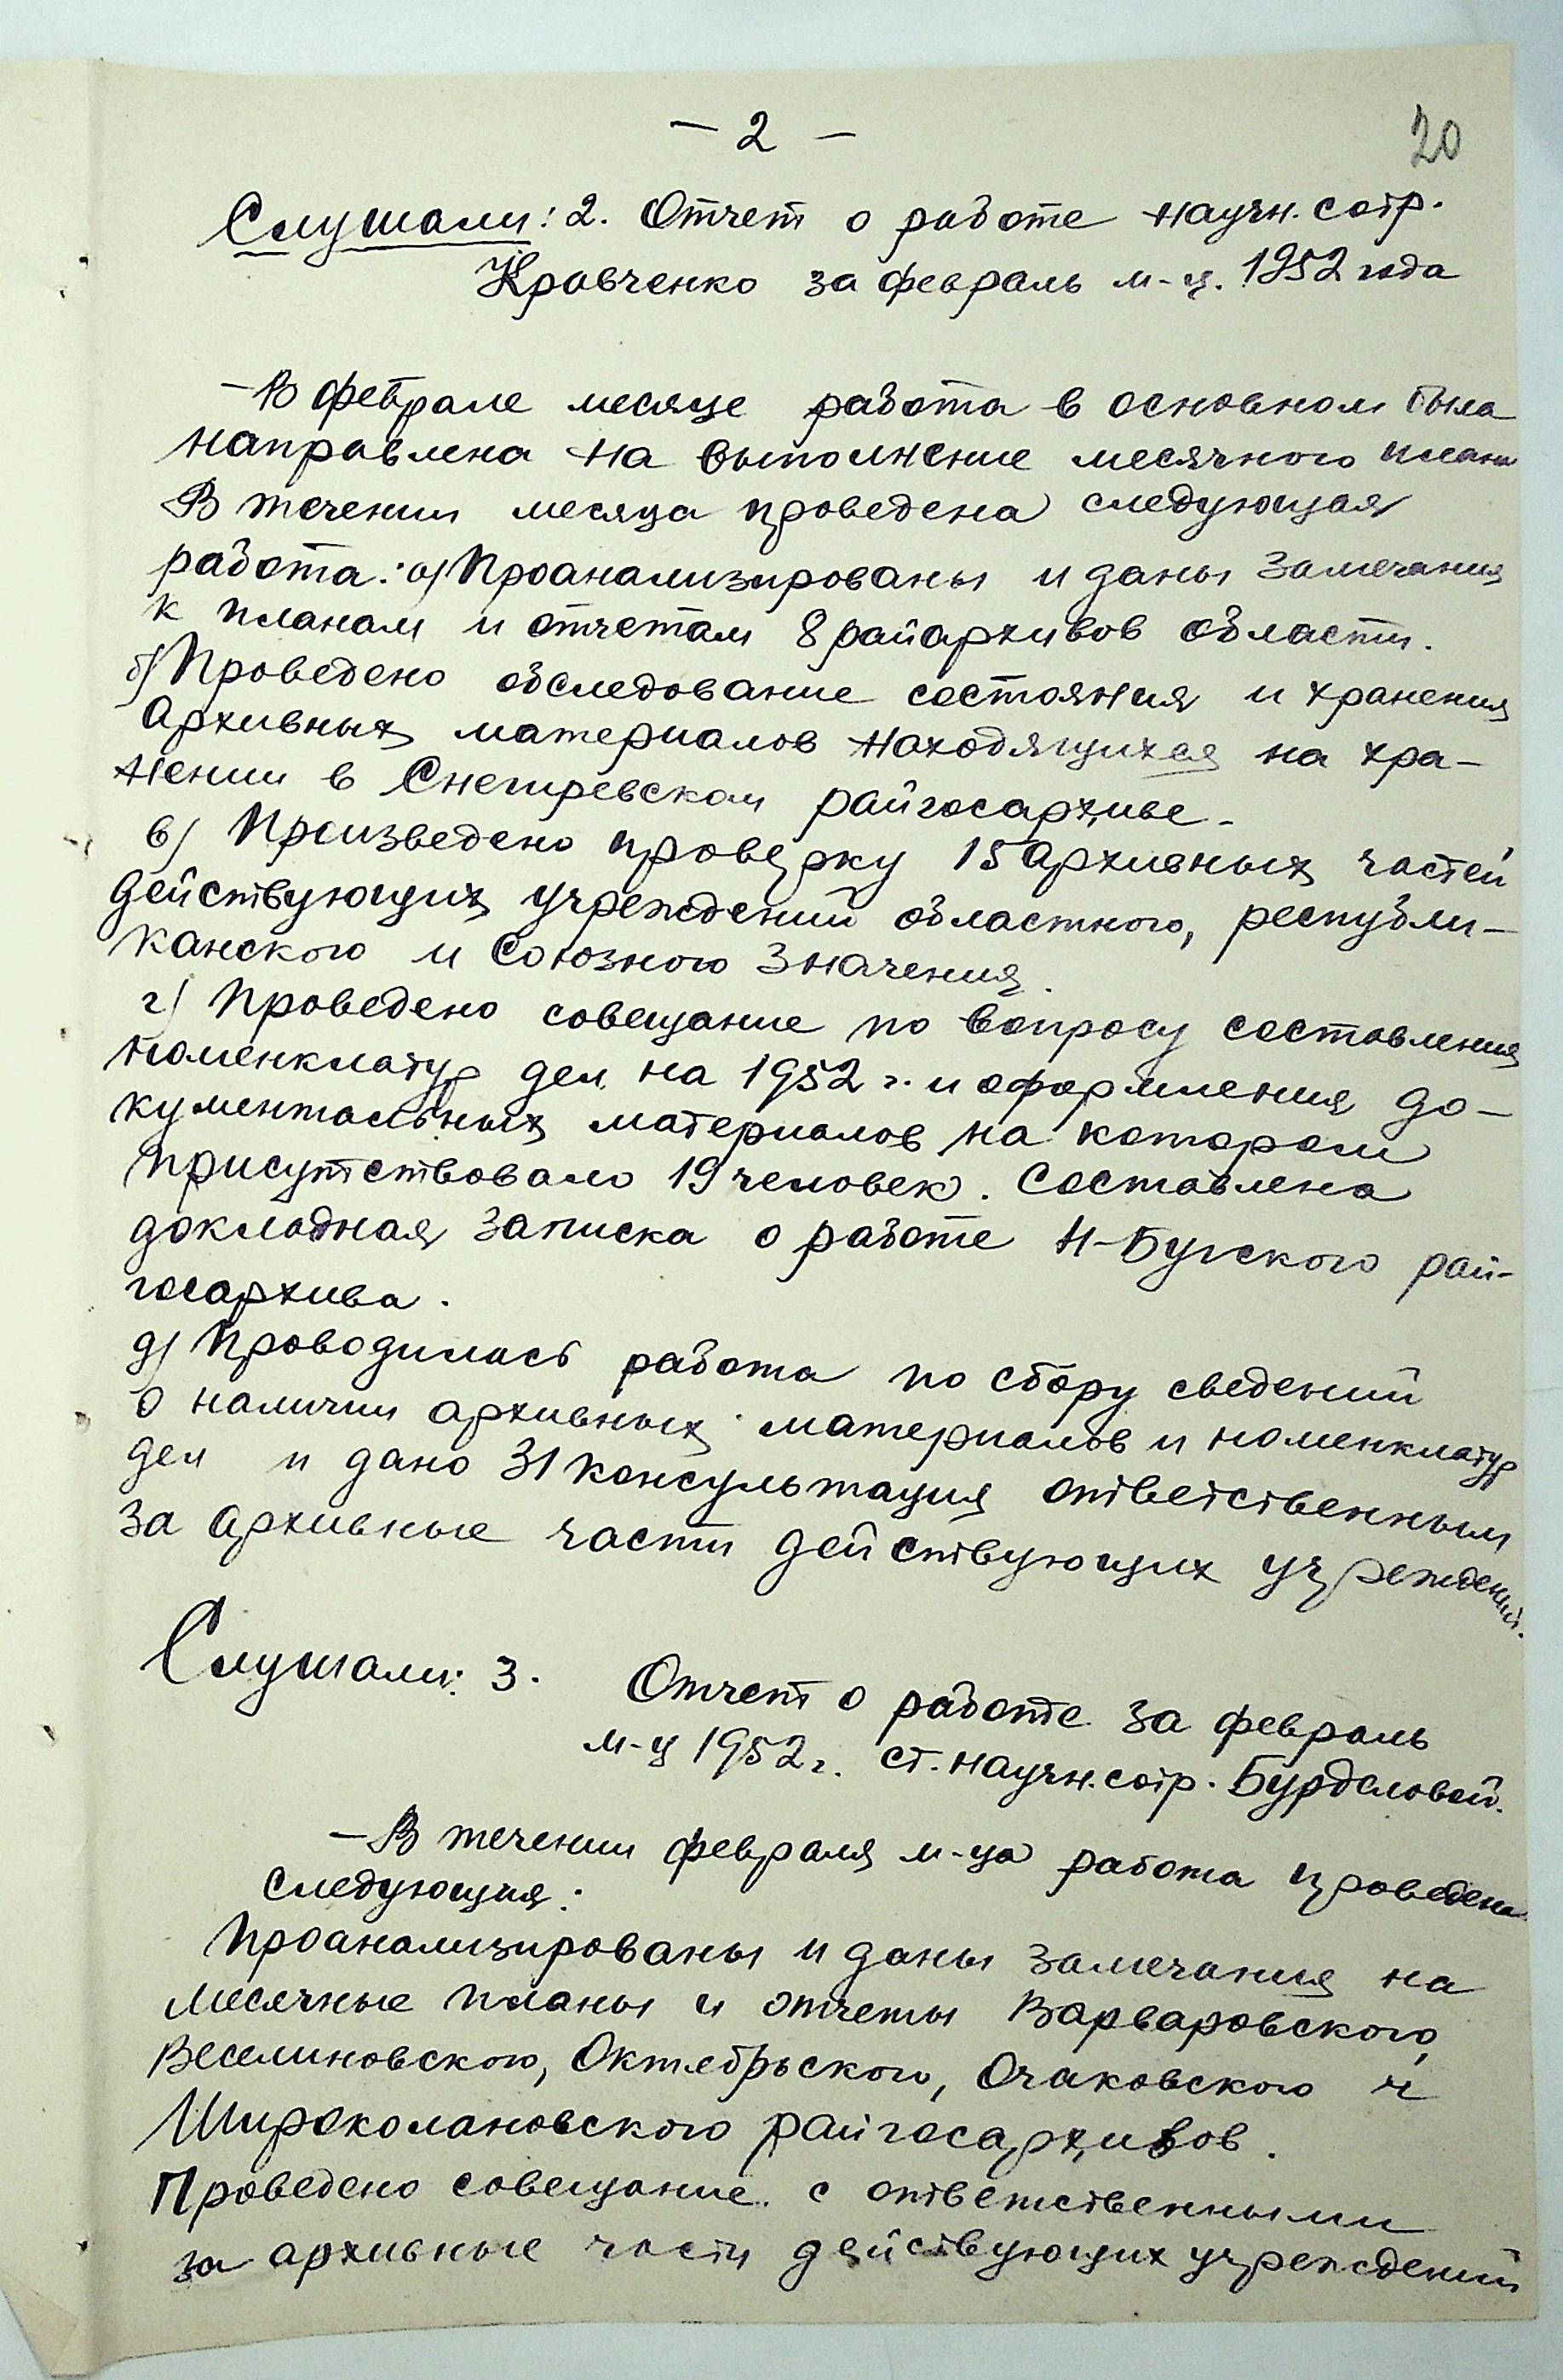 - 2 -
20
Слушали: 2. Отчет о работе научн. сотр.
Кравченко за февраль м-ц. 1952 года
- В феврале месяце работа в основном была
направлена на выполнение месячного плана
В течении месяца проведена следующая
работа: а) Проанализированы и даны замечания
к планам и отчетам 8 райархивов области.
б) Проведено обследование состояния и хранения
архивных материалов находящихся на хра-
нении в Снегиревском райгосархиве.
в) Произведено проверку 15 архивных частей
действующих учреждений областного, республи-
канского и союзного значения.
г) Проведено совещание по вопросу составления
номенклатур дел на 1952 г. и оформления до-
кументальных материалов на котором
присутствовало 19 человек. Составлена
докладная записка о работе Н-Бугского рай-
госархива.
д) Проводилась работа по сбору сведений
о наличии архивных материалов и номенклатур
дел и дано 31 консультация ответственным
за архивные части действующих учреждений.
Слушали: 3. Отчет о работе за февраль
м-ц 1952 г. ст. научн. сотр. Бурделовой.
- В течении февраля м-ца работа проведена
следующия:
Проанализированы и даны замечания на
месячные планы и отчеты Варваровского,
Веселиновского, Октябрьского, Очаковского и
Широколановского райгосархивов.
Проведено совещание с ответственными
за архивные части действующих учреждений